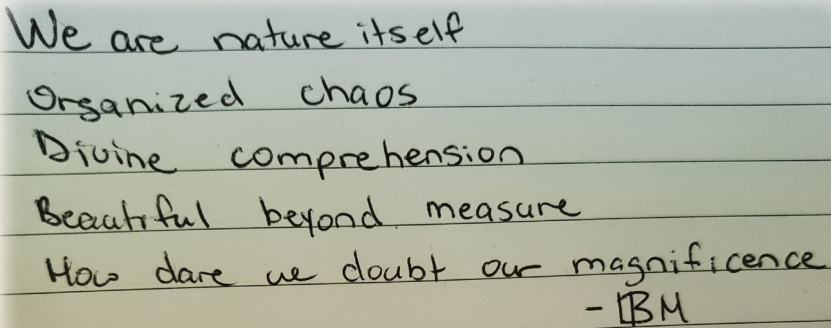 We are nature itself
Organized chaos
Divine comprehension
Beautiful beyond measure
How dare we doubt our magnificence
- IBM